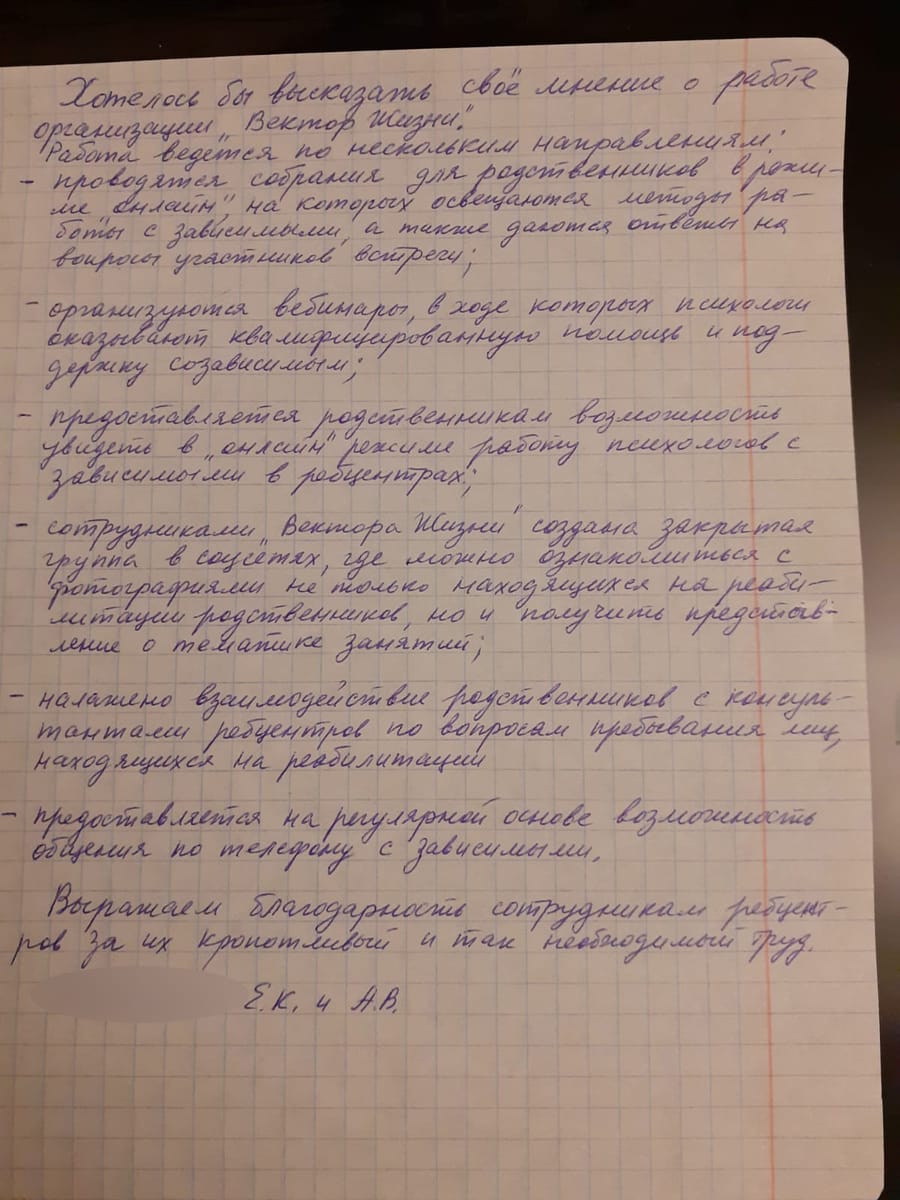 Хотелось бы высказать своё мнение о работе
организации „Вектор Жизни".
Работа ведётся по нескольким направлениям:
- проводятся собрания для родственников в режи-
ме „онлайн", на которых освещаются методы ра-
боты с зависимыми, а также даются ответы на
вопросы участников встречи;
- организуются вебинары, в ходе которых психологи
оказывают квалифицированную помощь и под-
держку созависимым;
- предоставляется родственникам возможность
увидеть в „онлайн" режиме работу психологов с
зависимыми в ребцентрах;
- сотрудниками „Вектора Жизни" создана закрытая
группа в соцсетях, где можно ознакомиться с
фотографиями не только находящихся на реаби-
литации родственников, но и получить представ-
ление о тематике занятий;
- налажено взаимодействие родственников с консуль-
тантами ребцентров по вопросам пребывания лиц,
находящихся на реабилитации
- предоставляется на регулярной основе возможность
общения по телефону с зависимыми.
Выражаем благодарность сотрудникам ребцент-
ров за их кропотливый и так необходимый труд.
Е.К. и А.В.